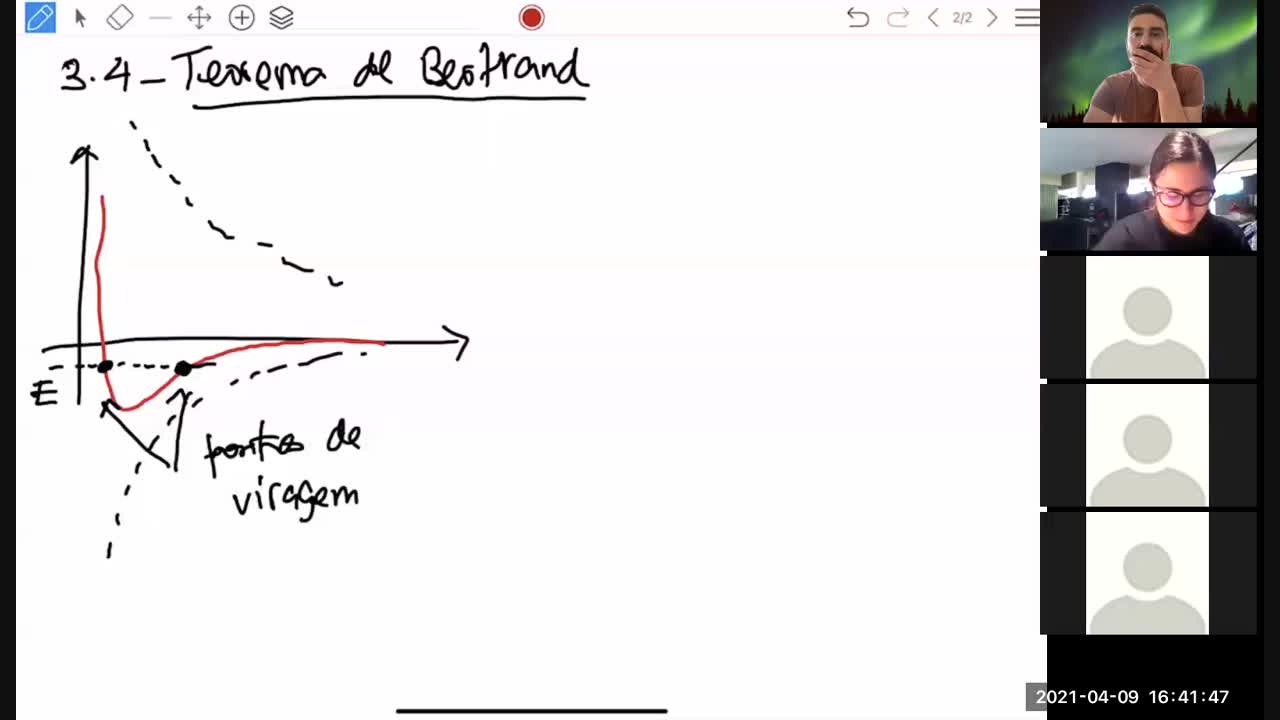 2/2
3.4 - Teorema de Bertrand
E
pontos de
viragem
2021-04-09 16:41:47